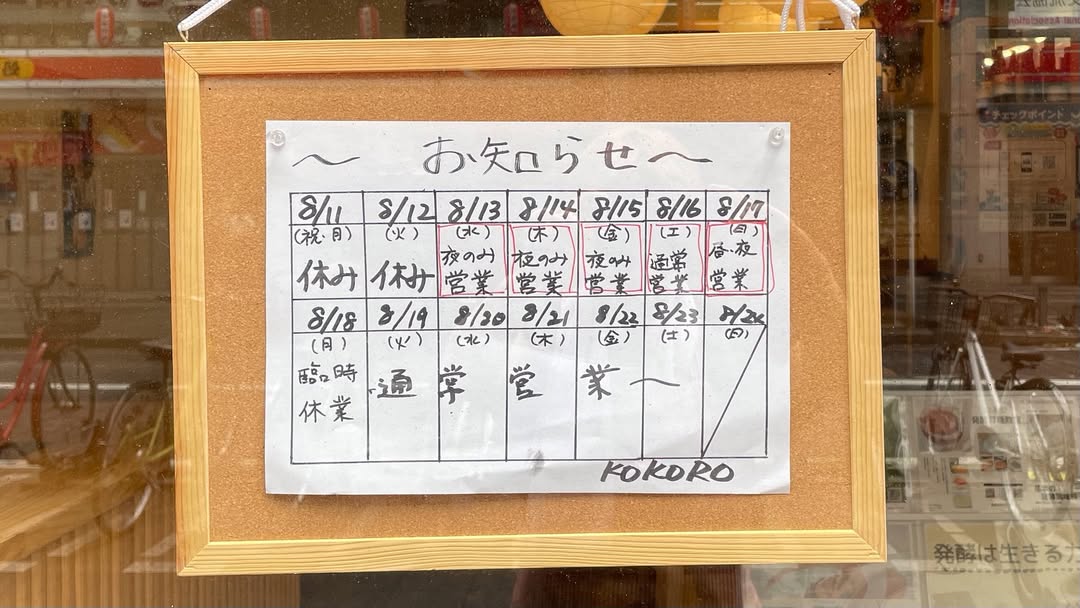 ～ お知らせ～
8/11 8/12 8/13 8/14 8/15 8/16 8/17
(祝・月) (火) (水) (木) (金) (土) (日)
休み 休み 夜のみ 夜のみ 夜のみ 通常 昼・夜
営業 営業 営業 営業 営業
8/18 8/19 8/20 8/21 8/22 8/23 8/24
(月) (火) (水) (木) (金) (土) (日)
臨時 通常営業～
休業
KOKORO
チェックポイント
発酵は生きる力